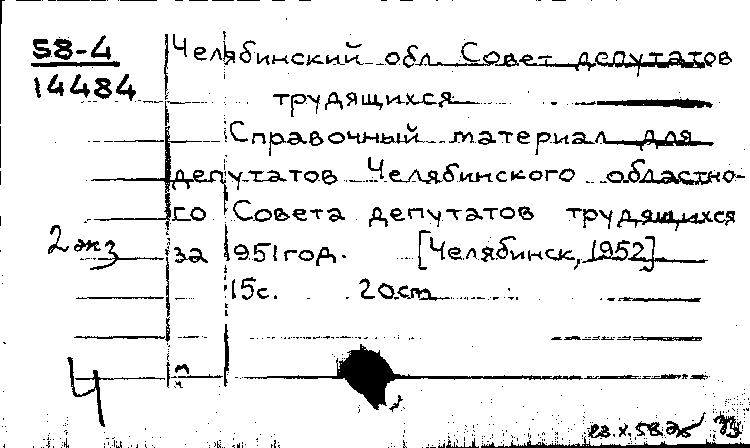 58-4
14484
Челябинский обл. Совет депутатов
трудящихся
Справочный материал для
депутатов Челябинского областно-
го Совета депутатов трудящихся
2 экз
за 1951 год. [Челябинск, 1952]
15с. 20 cm
Ч